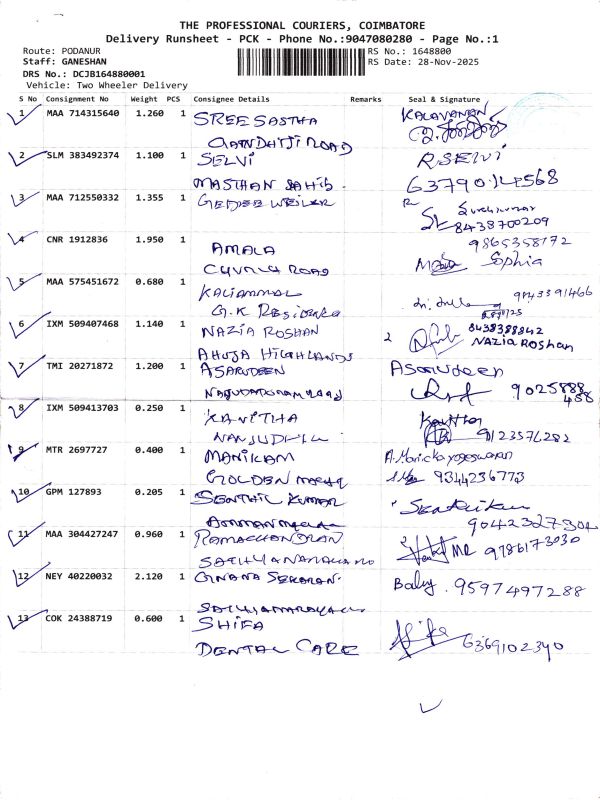 THE PROFESSIONAL COURIERS, COIMBATORE
Delivery Runsheet - PCK - Phone No.:9047080280 - Page No.:1
Route: PODANUR
RS No.: 1648800
Staff: GANESHAN
RS Date: 28-Nov-2025
DRS No.: DCJB164880001
Vehicle: Two Wheeler Delivery
S No Consignment No Weight PCS Consignee Details Remarks Seal & Signature
1 MAA 714315640 1.260 1 SREE SASTHA KALAVANAN
GANDHIJI ROAD
2 SLM 383492374 1.100 1 SELVI R SELVI
MASTHAN SAHIB. 6379014568
3 MAA 712550332 1.355 1 Sureshkumar
8438700209
4 CNR 1912836 1.950 1 9865358172
AMALA Sophia
ROAD
5 MAA 575451672 0.680 1 KALIAMMAL 9843391466
G.K Residency
6 IXM 509407468 1.140 1 NAZIA ROSHAN 8438388842
NAZIA ROSHAN
AHUJA HIGHLANDS
7 TMI 20271872 1.200 1 ASARUDEEN Asarudeen
9025888
488
8 IXM 509413703 0.250 1 KAVITHA Kavitha
9123576282
9 MTR 2697727 0.400 1 MANIKAM
GOLDEN 9344236773
10 GPM 127893 0.205 1 SENTHIL KUMAR
9042327304
11 MAA 304427247 0.960 1 RAMACHANDRAN 9786173030
12 NEY 40220032 2.120 1 GNANA SEKARAN. Baby. 9597497288
13 COK 24388719 0.600 1 SHIFA 6369102340
DENTAL CARE